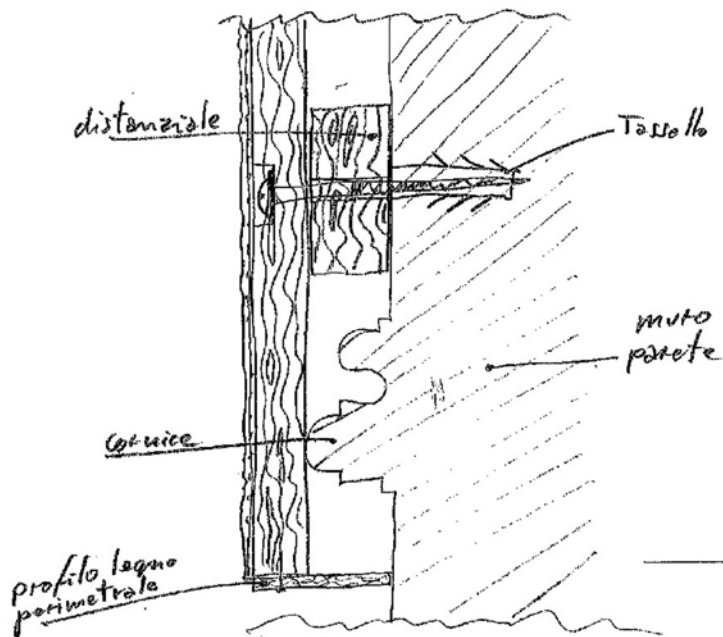 distanziale
Tassello
muro
parete
cornice
profilo legno
perimetrale